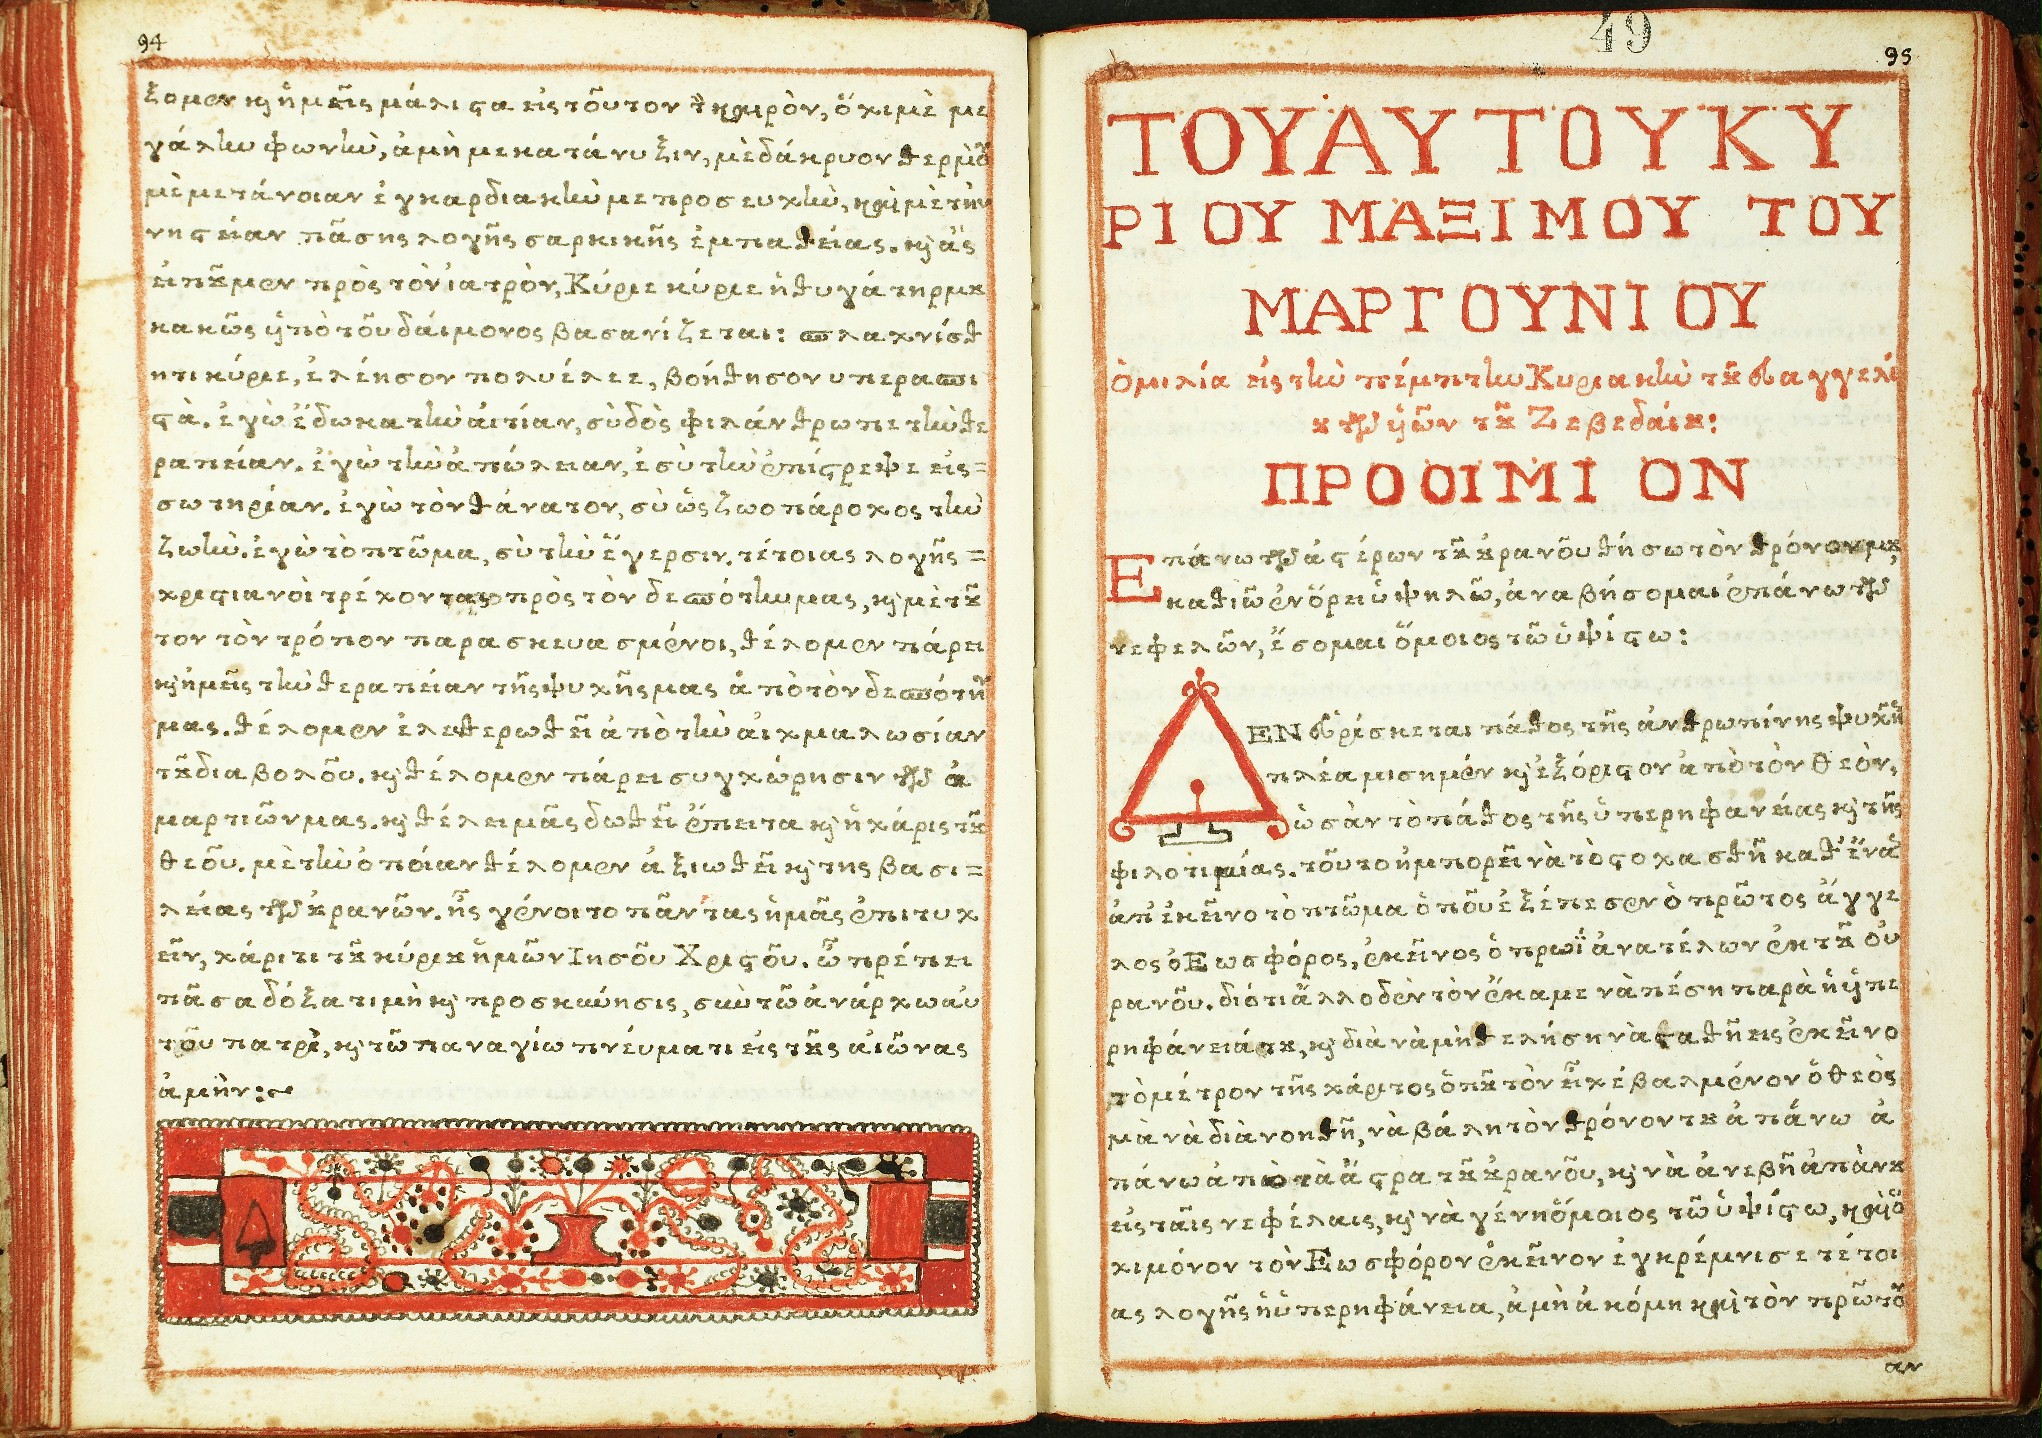 94
ξομεν κὶ ἡμεῖς μάλιϛα εἰς τοῦτον τ̀ καιρὸν, ὄχι μὲ με
γάλην φωνὴν, ἀμὴ με κατάνυξιν, μὲ δάκρυον θερμὸ
μὲ μετάνοιαν ἐγκαρδιακὴν με προσευχὴν, καὶ μὲ τὴν
νηϛείαν πᾶσης λογῆς σαρκικῆς ἐμπαθείας. κὶ ἂς
εἰποῦμεν πρὸς τὸν ἰατρὸν, Κύριε κύριε ἡ θυγάτηρ μου
κακῶς ὑπὸ τοῦ δαίμονος βασανίζεται: σπλαχνίσθ
ητι κύριε, ἐλέησον πολυέλεε, βοήθησον υπερασπι
ϛὰ. ἐγὼ ἔδωκα τὴν ἀιτίαν, σὺ δὸς φιλάνθρωπε τὴν θε
ραπείαν. ἐγὼ τὴν ἀπώλειαν, ἐσὺ τὴν ἐπίϛρεψε εἰς=
σωτηρίαν. ἐγὼ τὸν θάνατον, σὺ ὡς ζωοπάροχος τὴν
ζωὴν. ἐγὼ τὸ πτῶμα, σὺ τὴν ἔγερσιν. τέτοιας λογῆς=
χριϛιανοὶ τρέχοντας πρὸς τὸν δεσπότην μας, κὶ μὲ τοῦ
τον τὸν τρόπον παρασκευασμένοι, θέλομεν πάρει
κὶ ἡμεῖς τὴν θεραπείαν τῆς ψυχῆς μας ἀπὸ τὸν δεσπότην
μας. θέλομεν ἐλευθερωθεῖ ἀπὸ τὴν ἀιχμαλωσίαν
τοῦ διαβολοῦ. κὶ θέλομεν πάρει συγχώρησιν τῶν ἁ
μαρτιῶν μας. κὶ θέλει μᾶς δωθεῖ ἔπειτα κὶ ἡ χάρις τοῦ
θεοῦ. μὲ τὴν ὁποίαν θέλομεν ἀξιωθεῖ κὶ της βασι=
λείας τῶν οὐρανῶν. ἧς γένοιτο πᾶντας ἡμᾶς ἐπιτυχ
εῖν, χάριτι τοῦ κύριου ἡμῶν Ιησοῦ Χριϛοῦ. ᾧ πρέπει
πᾶσα δόξα τιμὴ κὶ προσκύνησις, σὺν τῶ ἀνάρχω αὐ
τοῦ πατρὶ, κὶ τῶ παναγίω πνέυματι εἰς τοὺς ἀιῶνας
ἀμὴν:~
49
95
ΤΟΥ ΑΥΤΟΥ ΚΥ
ΡΙΟΥ ΜΑΞΙΜΟΥ ΤΟΥ
ΜΑΡΓΟΥΝΙΟΥ
ὁμιλία εἰς τὴν πέμπτην Κυριακὴν τοῦ ευαγγελί
ου τῶν ὑιῶν τοῦ Ζεβεδάιου:
ΠΡΟΟΙΜΙΟΝ
Επάνω τῶν ἀϛέρων τοῦ οὐρανοῦ θήσω τὸν θρόνον μου,
καθιῶ ἐν ὄρει ὑψηλῶ, ἀναβήσομαι ἐπάνω τῶν
νεφελῶν, ἔσομαι ὅμοιος τῶ ὑψίϛω:
ΔΕΝ εὑρίσκεται πάθος τῆς ἀνθρωπίνης ψυχῆς
πλέα μισημένον κὶ ἐξόριϛον ἀπὸ τὸν θεὸν,
ὡσὰν τὸ πάθος τῆς ὑπερηφανείας κὶ τῆς
φιλοτιμίας. τοῦτο ἠμπορεῖ νὰ τὸ ϛοχασθῆ καθ' ἕνας
ἀπ' ἐκεῖνο τὸ πτῶμα ὁποῦ ἐξέπεσεν ὁ πρῶτος ἄγγε
λος ὁ Εωσφόρος, ἐκεῖνος ὁ πρωῒ ἀνατέλων ἐκ τοῦ οὐ
ρανοῦ. διότι ἄλλο δὲν τὸν ἔκαμε νὰ πέση παρὰ ἡ ὑπε
ρηφάνειά του, κὶ διὰ νὰ μὴ θελήση νὰ ϛαθῆ εις ἐκεῖνο
τὸ μέτρον τῆς χάριτος ὁποῦ τὸν εἶχέ βαλμένον ὁ θεὸς
μὰ νὰ διὰνοηθῆ, νὰ βάλη τὸν θρόνον του ἀπάνω ἀ
πάνω ἀπὸ τὰ ἄϛρα τοῦ οὐρανοῦ, κὶ νὰ ἀνεβῆ ἀπάνου
εἰς ταῖς νεφέλαις, κὶ νὰ γένη ὅμοιος τῶ ὑψίϛω, καὶ ὄ
χι μόνον τὸν Εωσφόρον ἐκεῖνον ἐγκρέμνισε τέτοι
ας λογῆς ἡ ὑπερηφάνεια, ἀμὴ ἀκόμη καὶ τὸν πρῶτον
αν